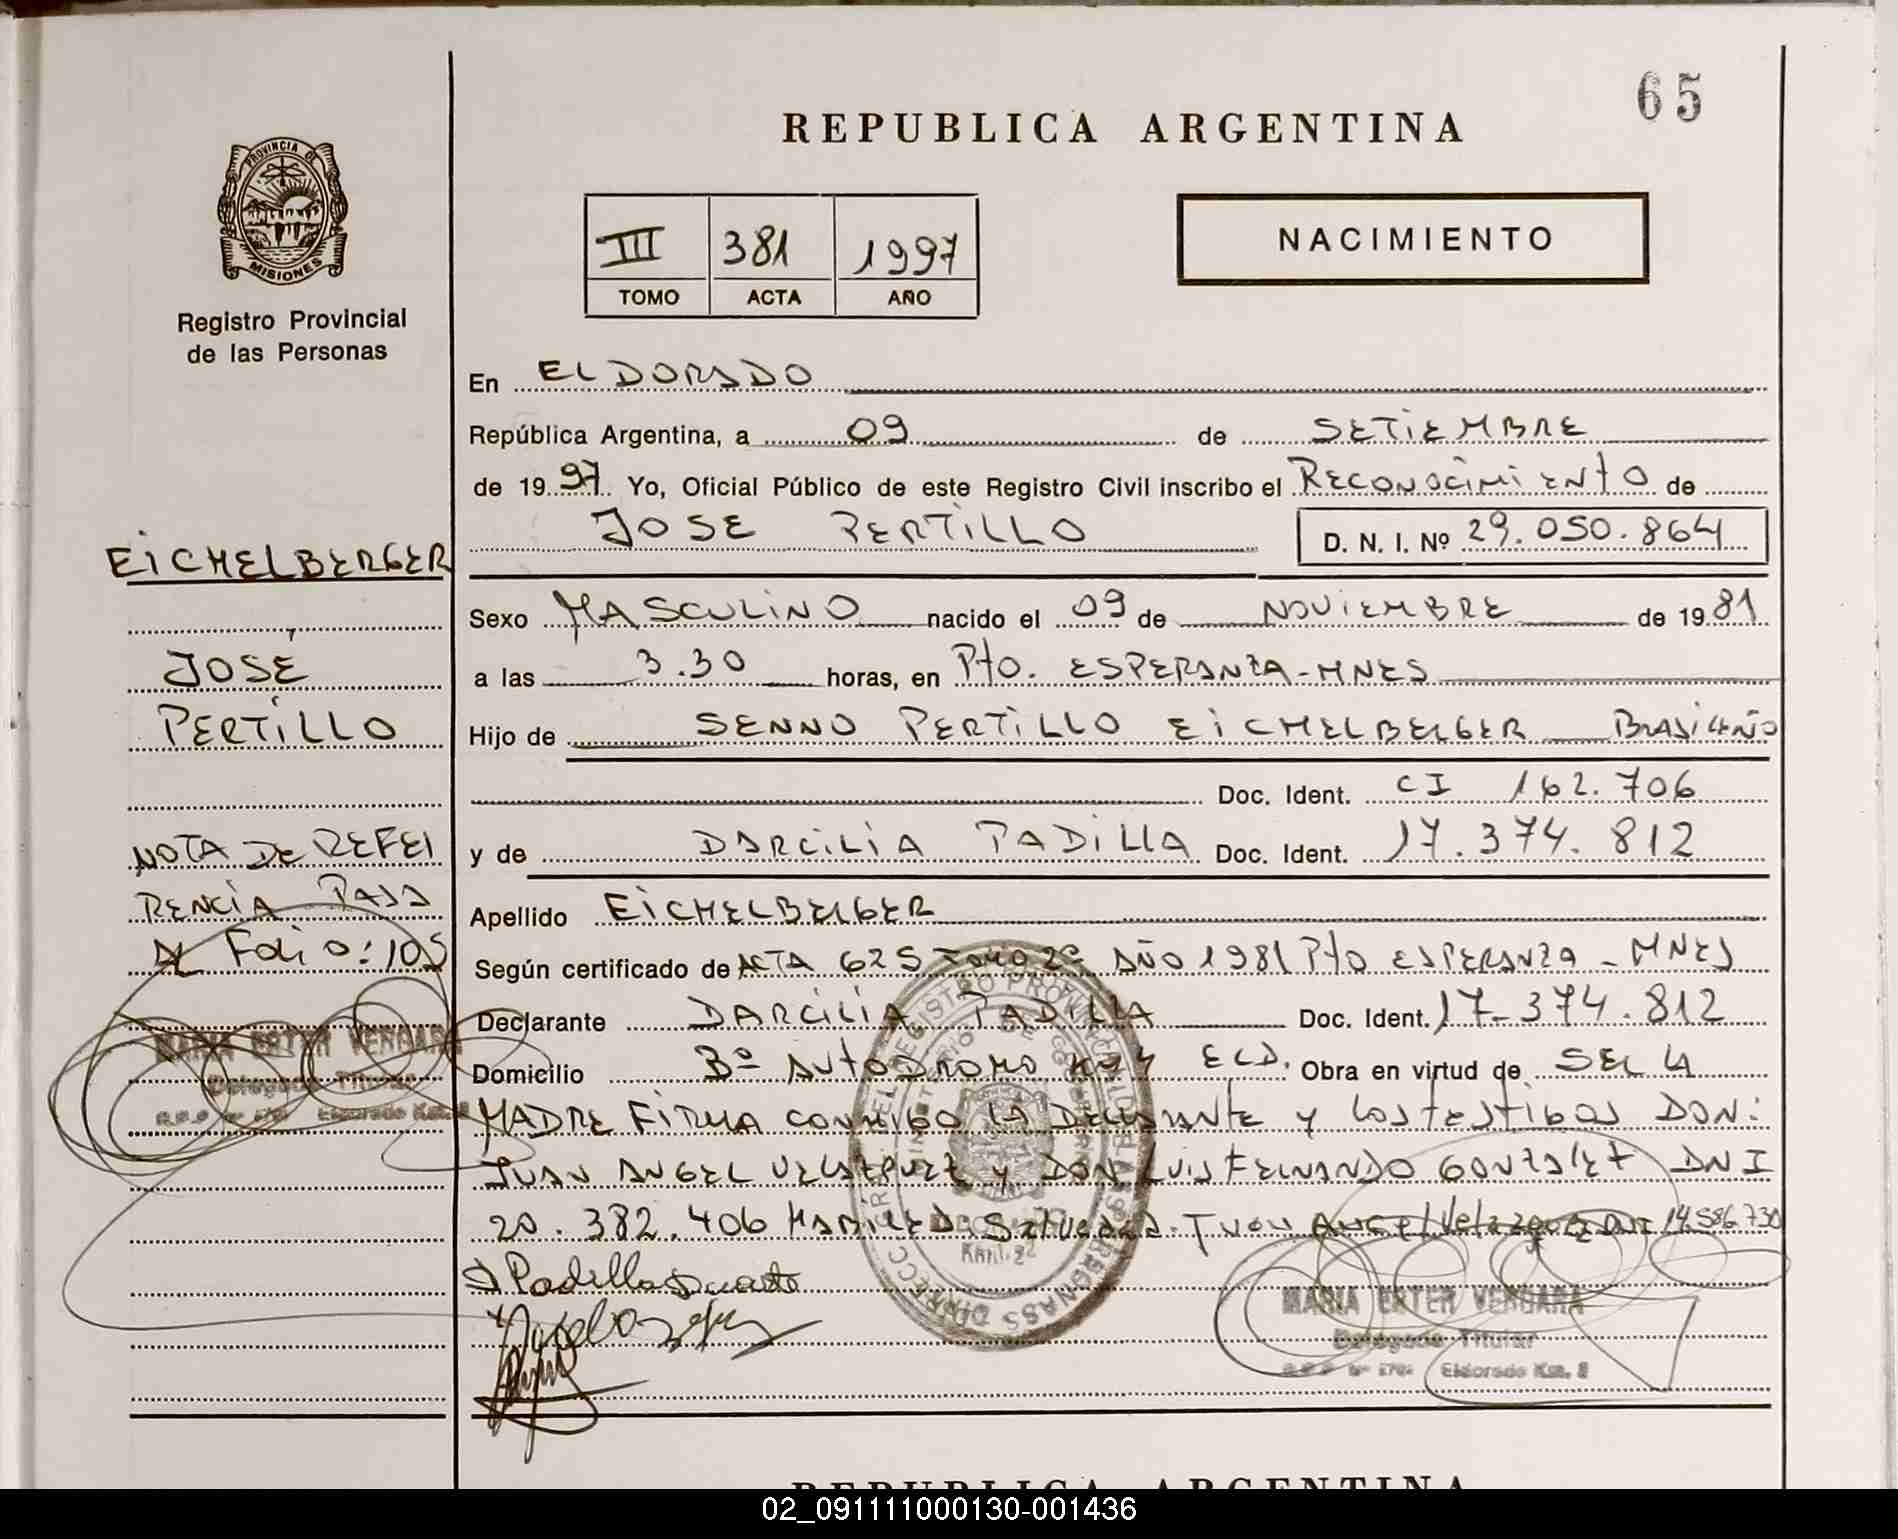 65
REPUBLICA ARGENTINA
PROVINCIA DE
MISIONES
Registro Provincial
de las Personas
III 381 1997
TOMO ACTA AÑO
NACIMIENTO
En ELDORADO
República Argentina, a 09 de SETIEMBRE
de 1997. Yo, Oficial Público de este Registro Civil inscribo el RECONOCIMIENTO de
JOSE PERTILLO D. N. I. Nº 29.050.864
Sexo MASCULINO nacido el 09 de NOVIEMBRE de 1981
a las 3.30 horas, en Pto. ESPERANZA-MNES
Hijo de SENNO PERTILLO EICHELBERGER BRASILEÑO
Doc. Ident. CI 162.706
y de DARCILIA PADILLA Doc. Ident. 17.374.812
Apellido EICHELBERGER
Según certificado de ACTA 625 TOMO 2º AÑO 1981 Pto ESPERANZA - MNES
Declarante DARCILIA PADILLA Doc. Ident. 17-374.812
Domicilio Bº AUTODROMO ELD. Obra en virtud de SER LA
MADRE FIRMA CONMIGO LA DECLARANTE y LOS TESTIGOS DON:
JUAN ANGEL VELAZQUEZ y DON LUIS FERNANDO GONZALEZ DNI
20.382.406 Juan Angel Velazquez DNI 14.586.730
Padilla
MARIA ESTER VERGARA
Delegado Titular
Eldorado Km. 8
EICHELBERGER
JOSÉ
PERTILLO
NOTA DE REFE
RENCIA PASA
AL FOLIO: 105
MARIA ESTER VERGARA
Delegado Titular
Eldorado Km. 8
REPUBLICA ARGENTINA
02_091111000130-001436